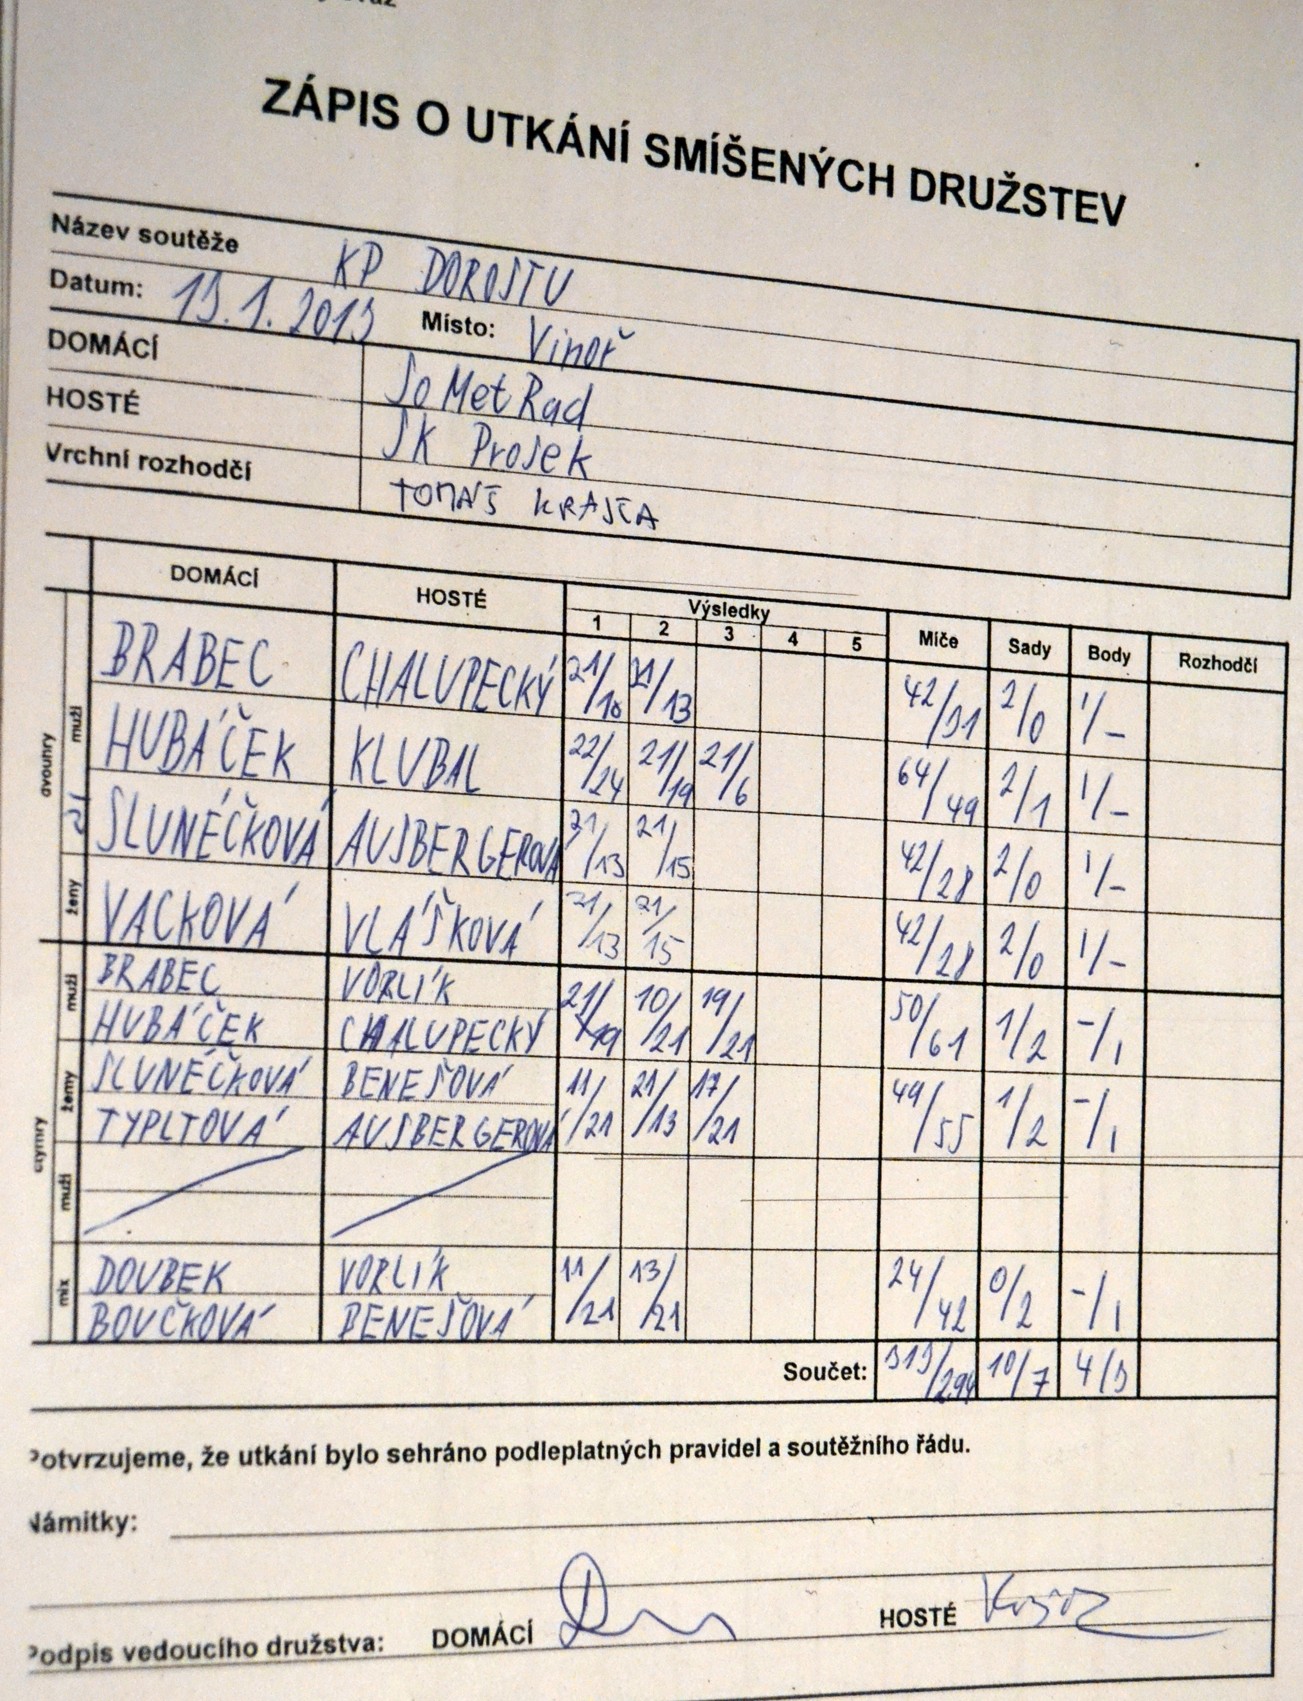 ZÁPIS O UTKÁNÍ SMÍŠENÝCH DRUŽSTEV
Název soutěže KP DOROSTU
Datum: 19.1.2013 Místo: Vinoř
DOMÁCÍ SoMetRad
HOSTÉ SK Prosek
Vrchní rozhodčí TOMÁŠ KRAJČA
DOMÁCÍ HOSTÉ Výsledky Míče Sady Body Rozhodčí
1 2 3 4 5
dvouhry
muži
BRABEC CHALUPECKÝ 21/10 21/13 42/31 2/0 1/-
HUBÁČEK KLUBAL 22/24 21/19 21/6 64/49 2/1 1/-
SLUNÉČKOVÁ AUSBERGEROVÁ 21/13 21/15 42/28 2/0 1/-
ženy
VACKOVÁ VLÁŠKOVÁ 21/13 21/15 42/28 2/0 1/-
čtyřhry
muži
BRABEC VORLÍK
HUBÁČEK CHALUPECKÝ 21/19 10/21 19/21 50/61 1/2 -/1
ženy
SLUNÉČKOVÁ BENEŠOVÁ
TYPLTOVÁ AUSBERGEROVÁ 11/21 21/13 17/21 49/55 1/2 -/1
muži
mix
DOUBEK VORLÍK
BOUČKOVÁ BENEŠOVÁ 11/21 13/21 24/42 0/2 -/1
Součet: 313/294 10/7 4/3
Potvrzujeme, že utkání bylo sehráno podleplatných pravidel a soutěžního řádu.
Námitky:
Podpis vedoucího družstva: DOMÁCÍ HOSTÉ